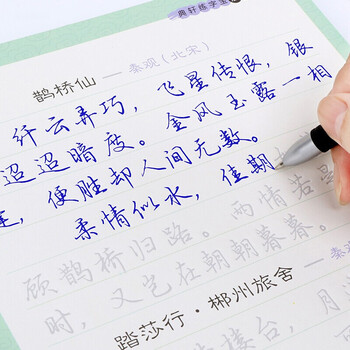 典轩练字
鹊桥仙 — 秦观（北宋）
纤云弄巧，飞星传恨，银
迢迢暗度。金风玉露一相
逢，便胜却人间无数。
柔情似水，佳期
顾鹊桥归路。两情若是
时，又岂在朝朝暮暮。
踏莎行·郴州旅舍 — 秦
楼台，月